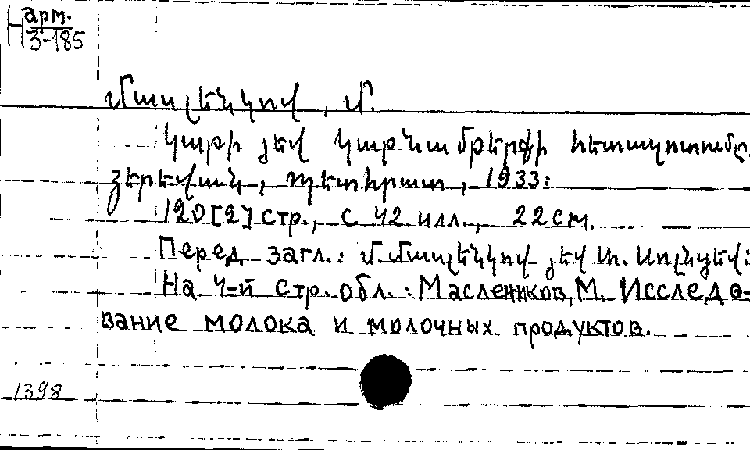 Н арм.
3-185
Մասլենկով, Մ.
Կաթի յեվ կաթնամթերքի հետազոտումը.
Յերեվան, Պետհրատ, 1933:
120 [2] стр., с 42 илл., 22 см.
Перед загл.: Մ. Մասլենկով յեվ
На 4-й стр. обл.: Маслеников, М. Исследо-
вание молока и молочных продуктов.
1398